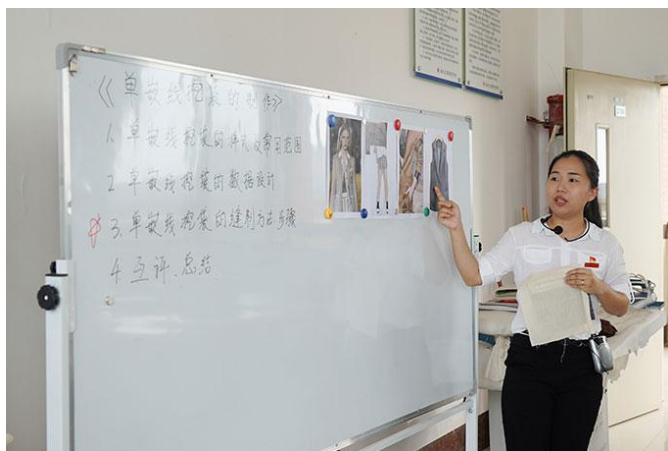 《单嵌线挖袋的制作》
1. 单嵌线挖袋的样式及常用范围
2. 单嵌线挖袋的数据设计
3. 单嵌线挖袋的缝制方法步骤
4. 互评、总结